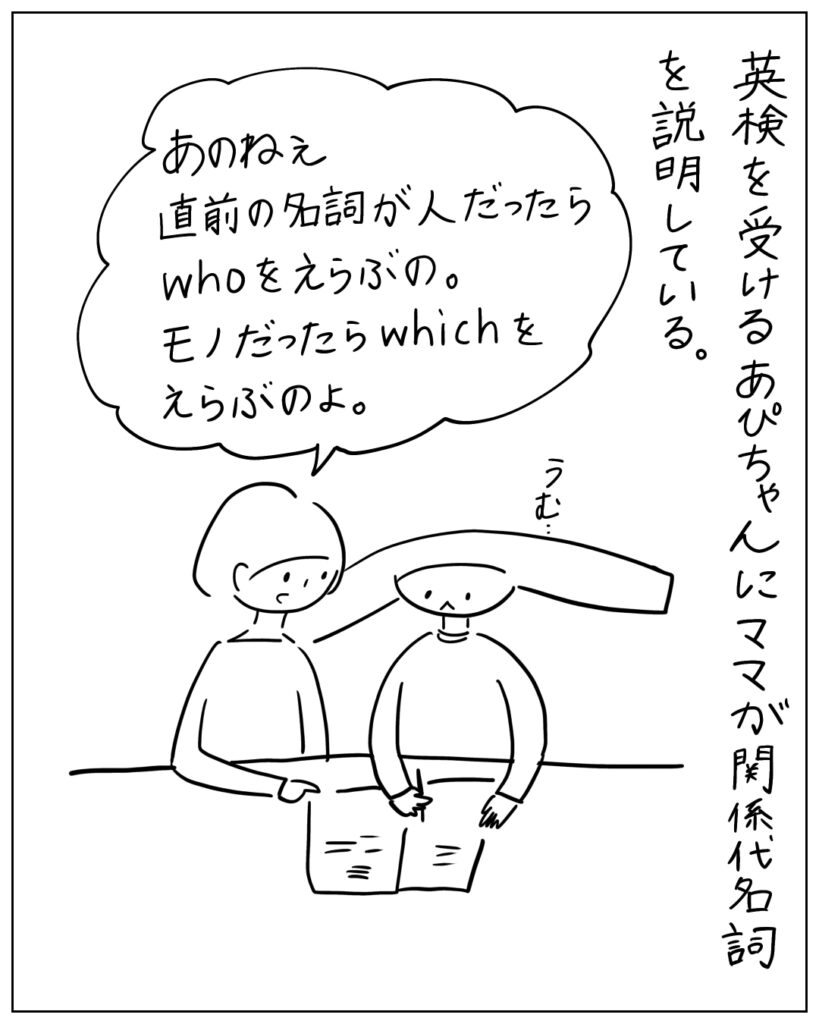 英検を受けるあぴちゃんにママが関係代名詞
を説明している。
あのねぇ
直前の名詞が人だったら
whoをえらぶの。
モノだったらwhichを
えらぶのよ。
うむ…